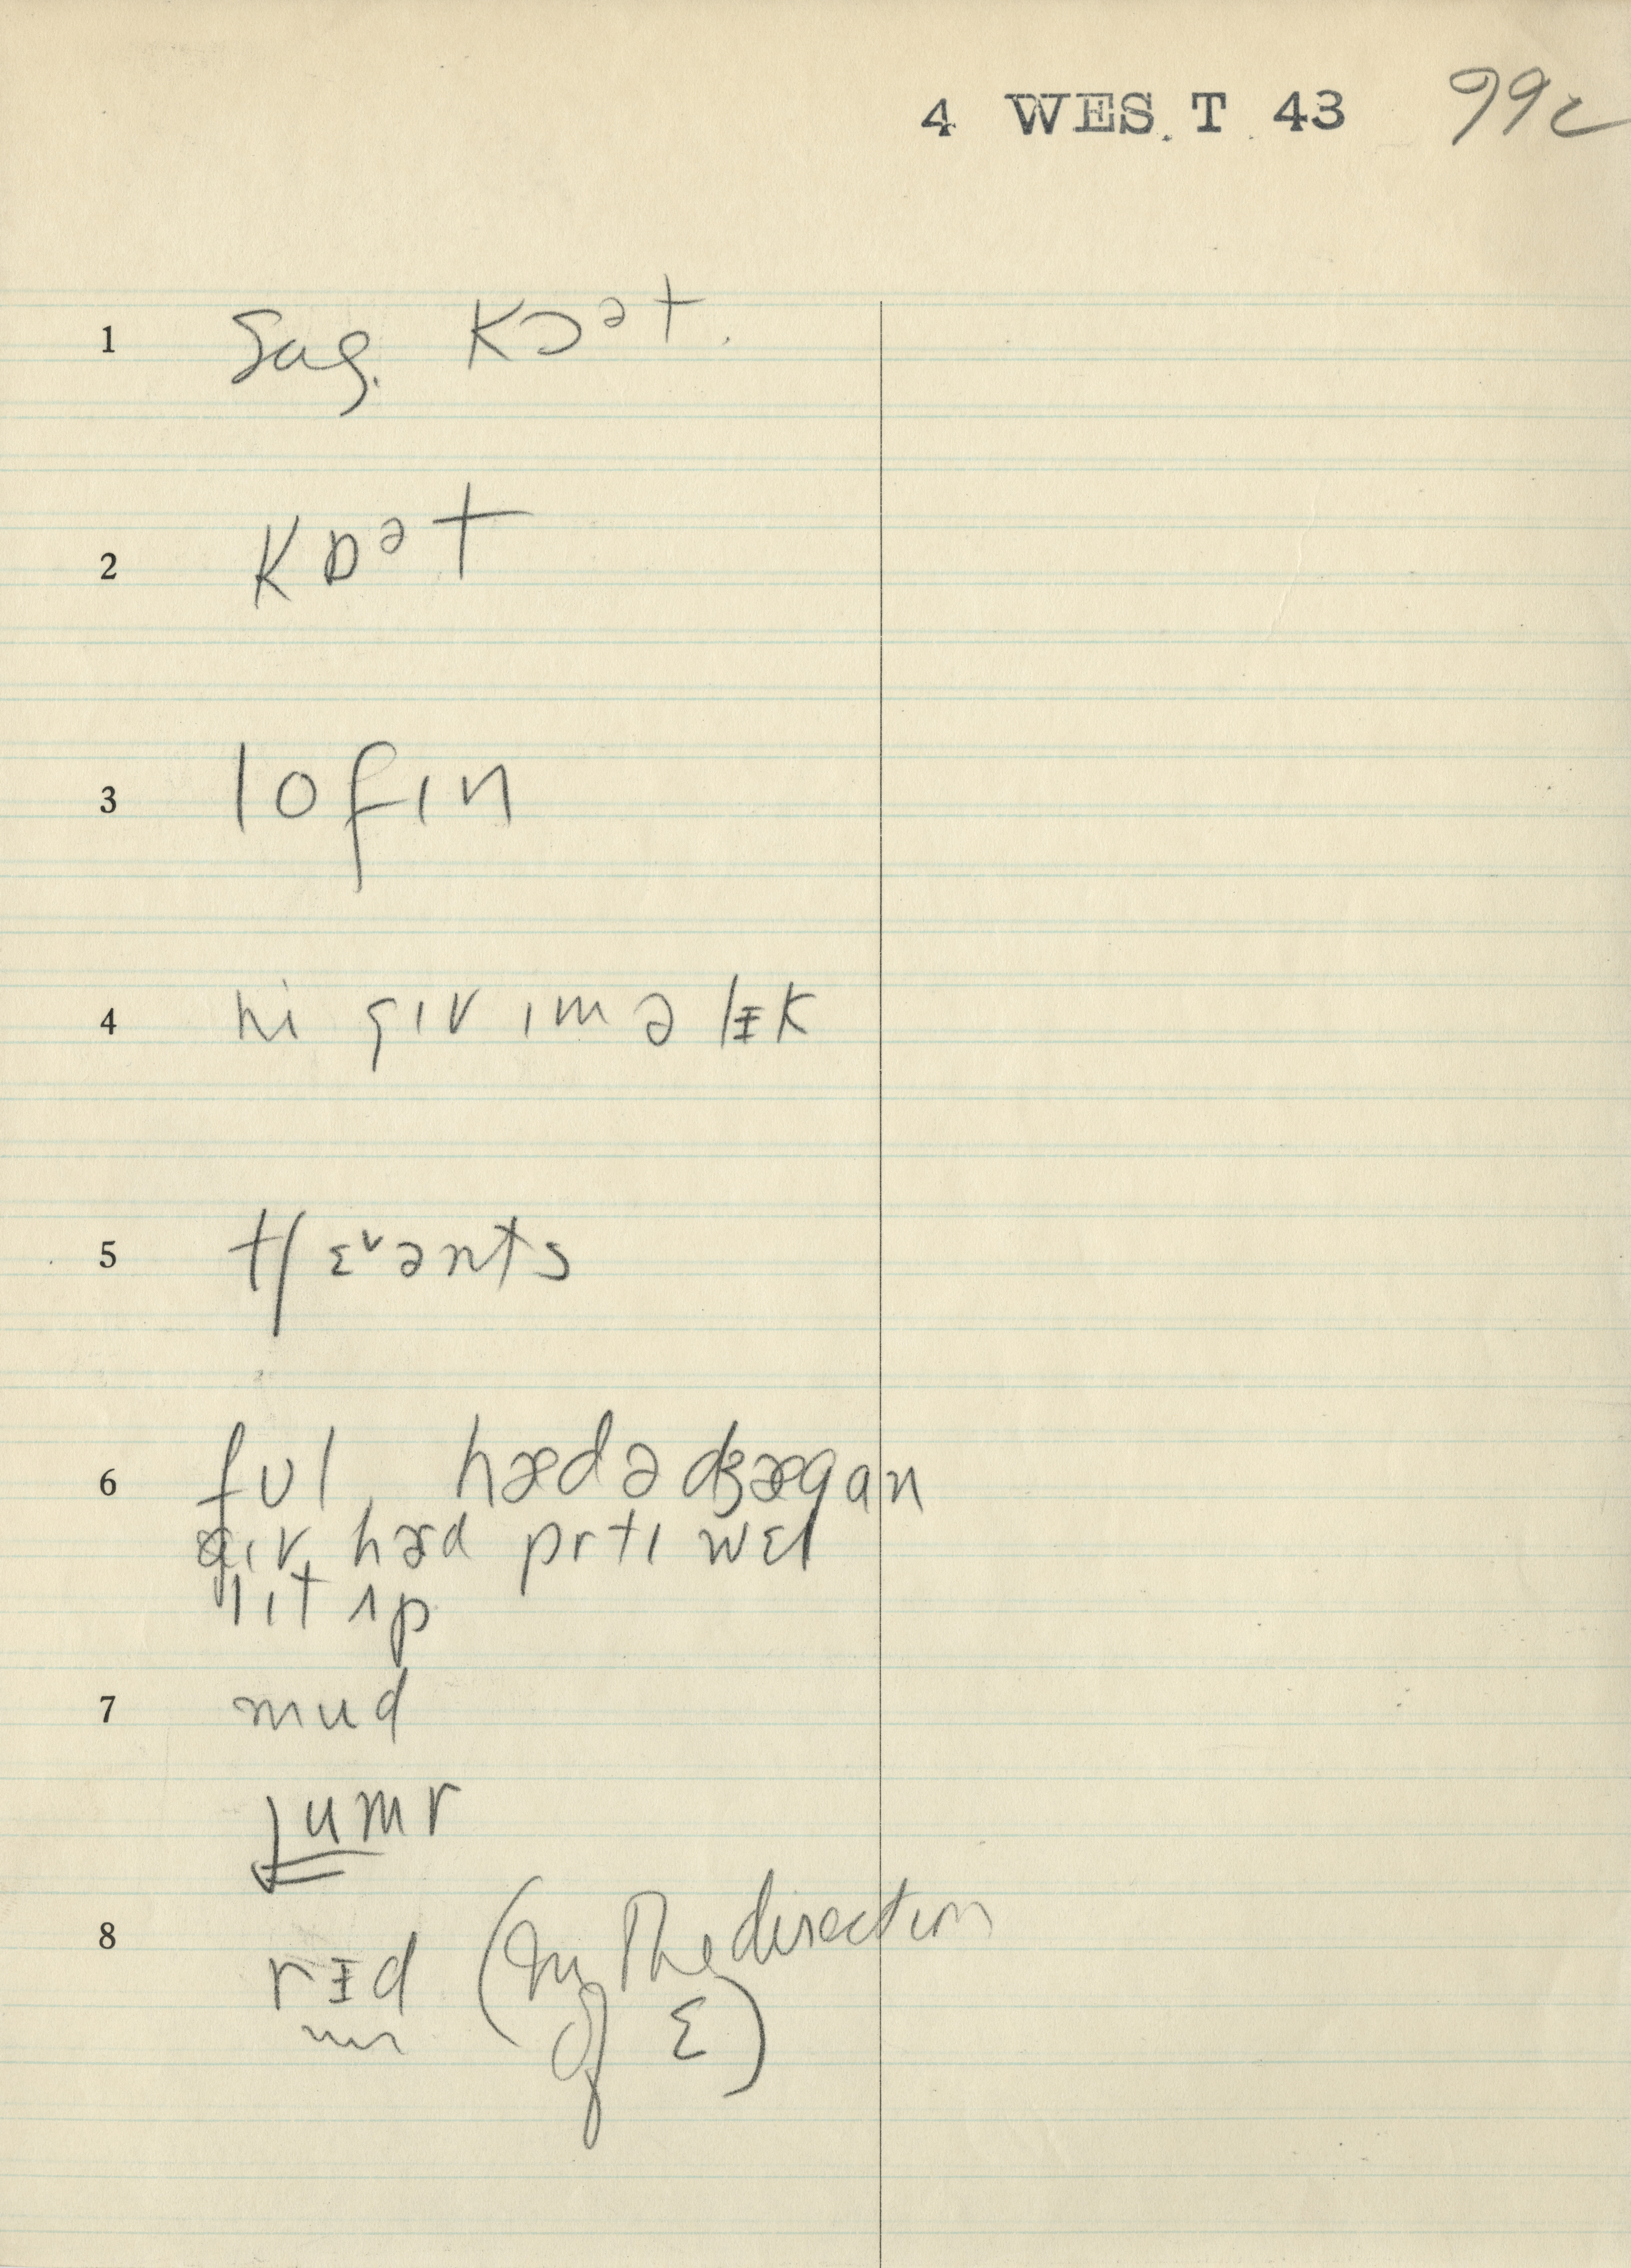 4 WES. T 43 99c
1 Sug. kɔᵊt.
2 kɒᵊt
3 lofɪn
4 hi gɪv ɪm ə lᵻk
5 tʃɛᵛənts
6 fʊl hæd ə ʤæg an
gɪv hæd prtɪ wɛl
lɪt ʌp
7 mud
ɹumr
8 rᵻd (in the direction
of ɛ)